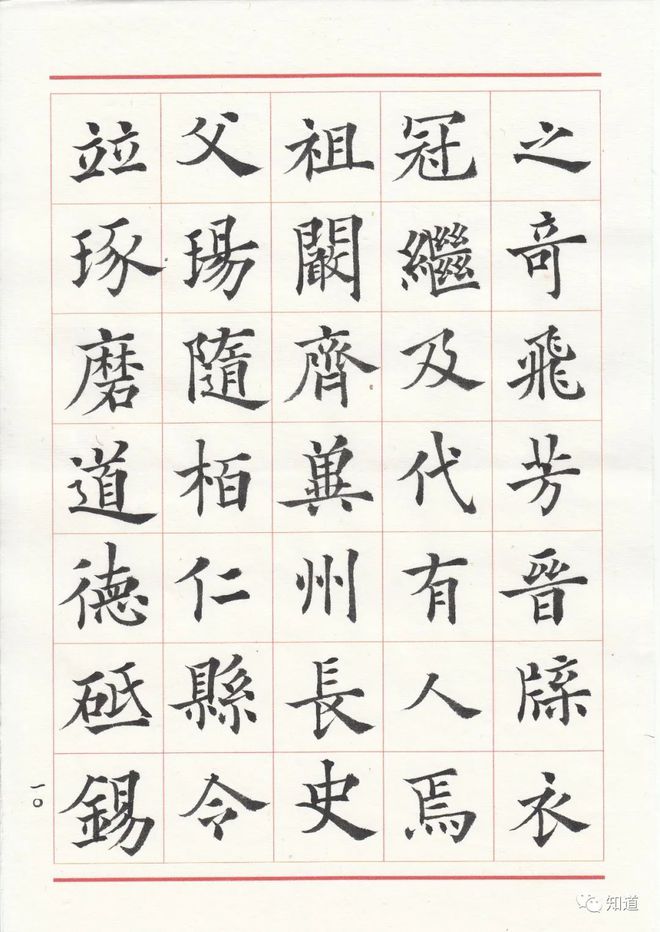 之奇飛芳晉牒衣
冠繼及代有人焉
祖闞齊兾州長史
父瑒隨栢仁縣令
竝琢磨道德砥錫
一〇
知道